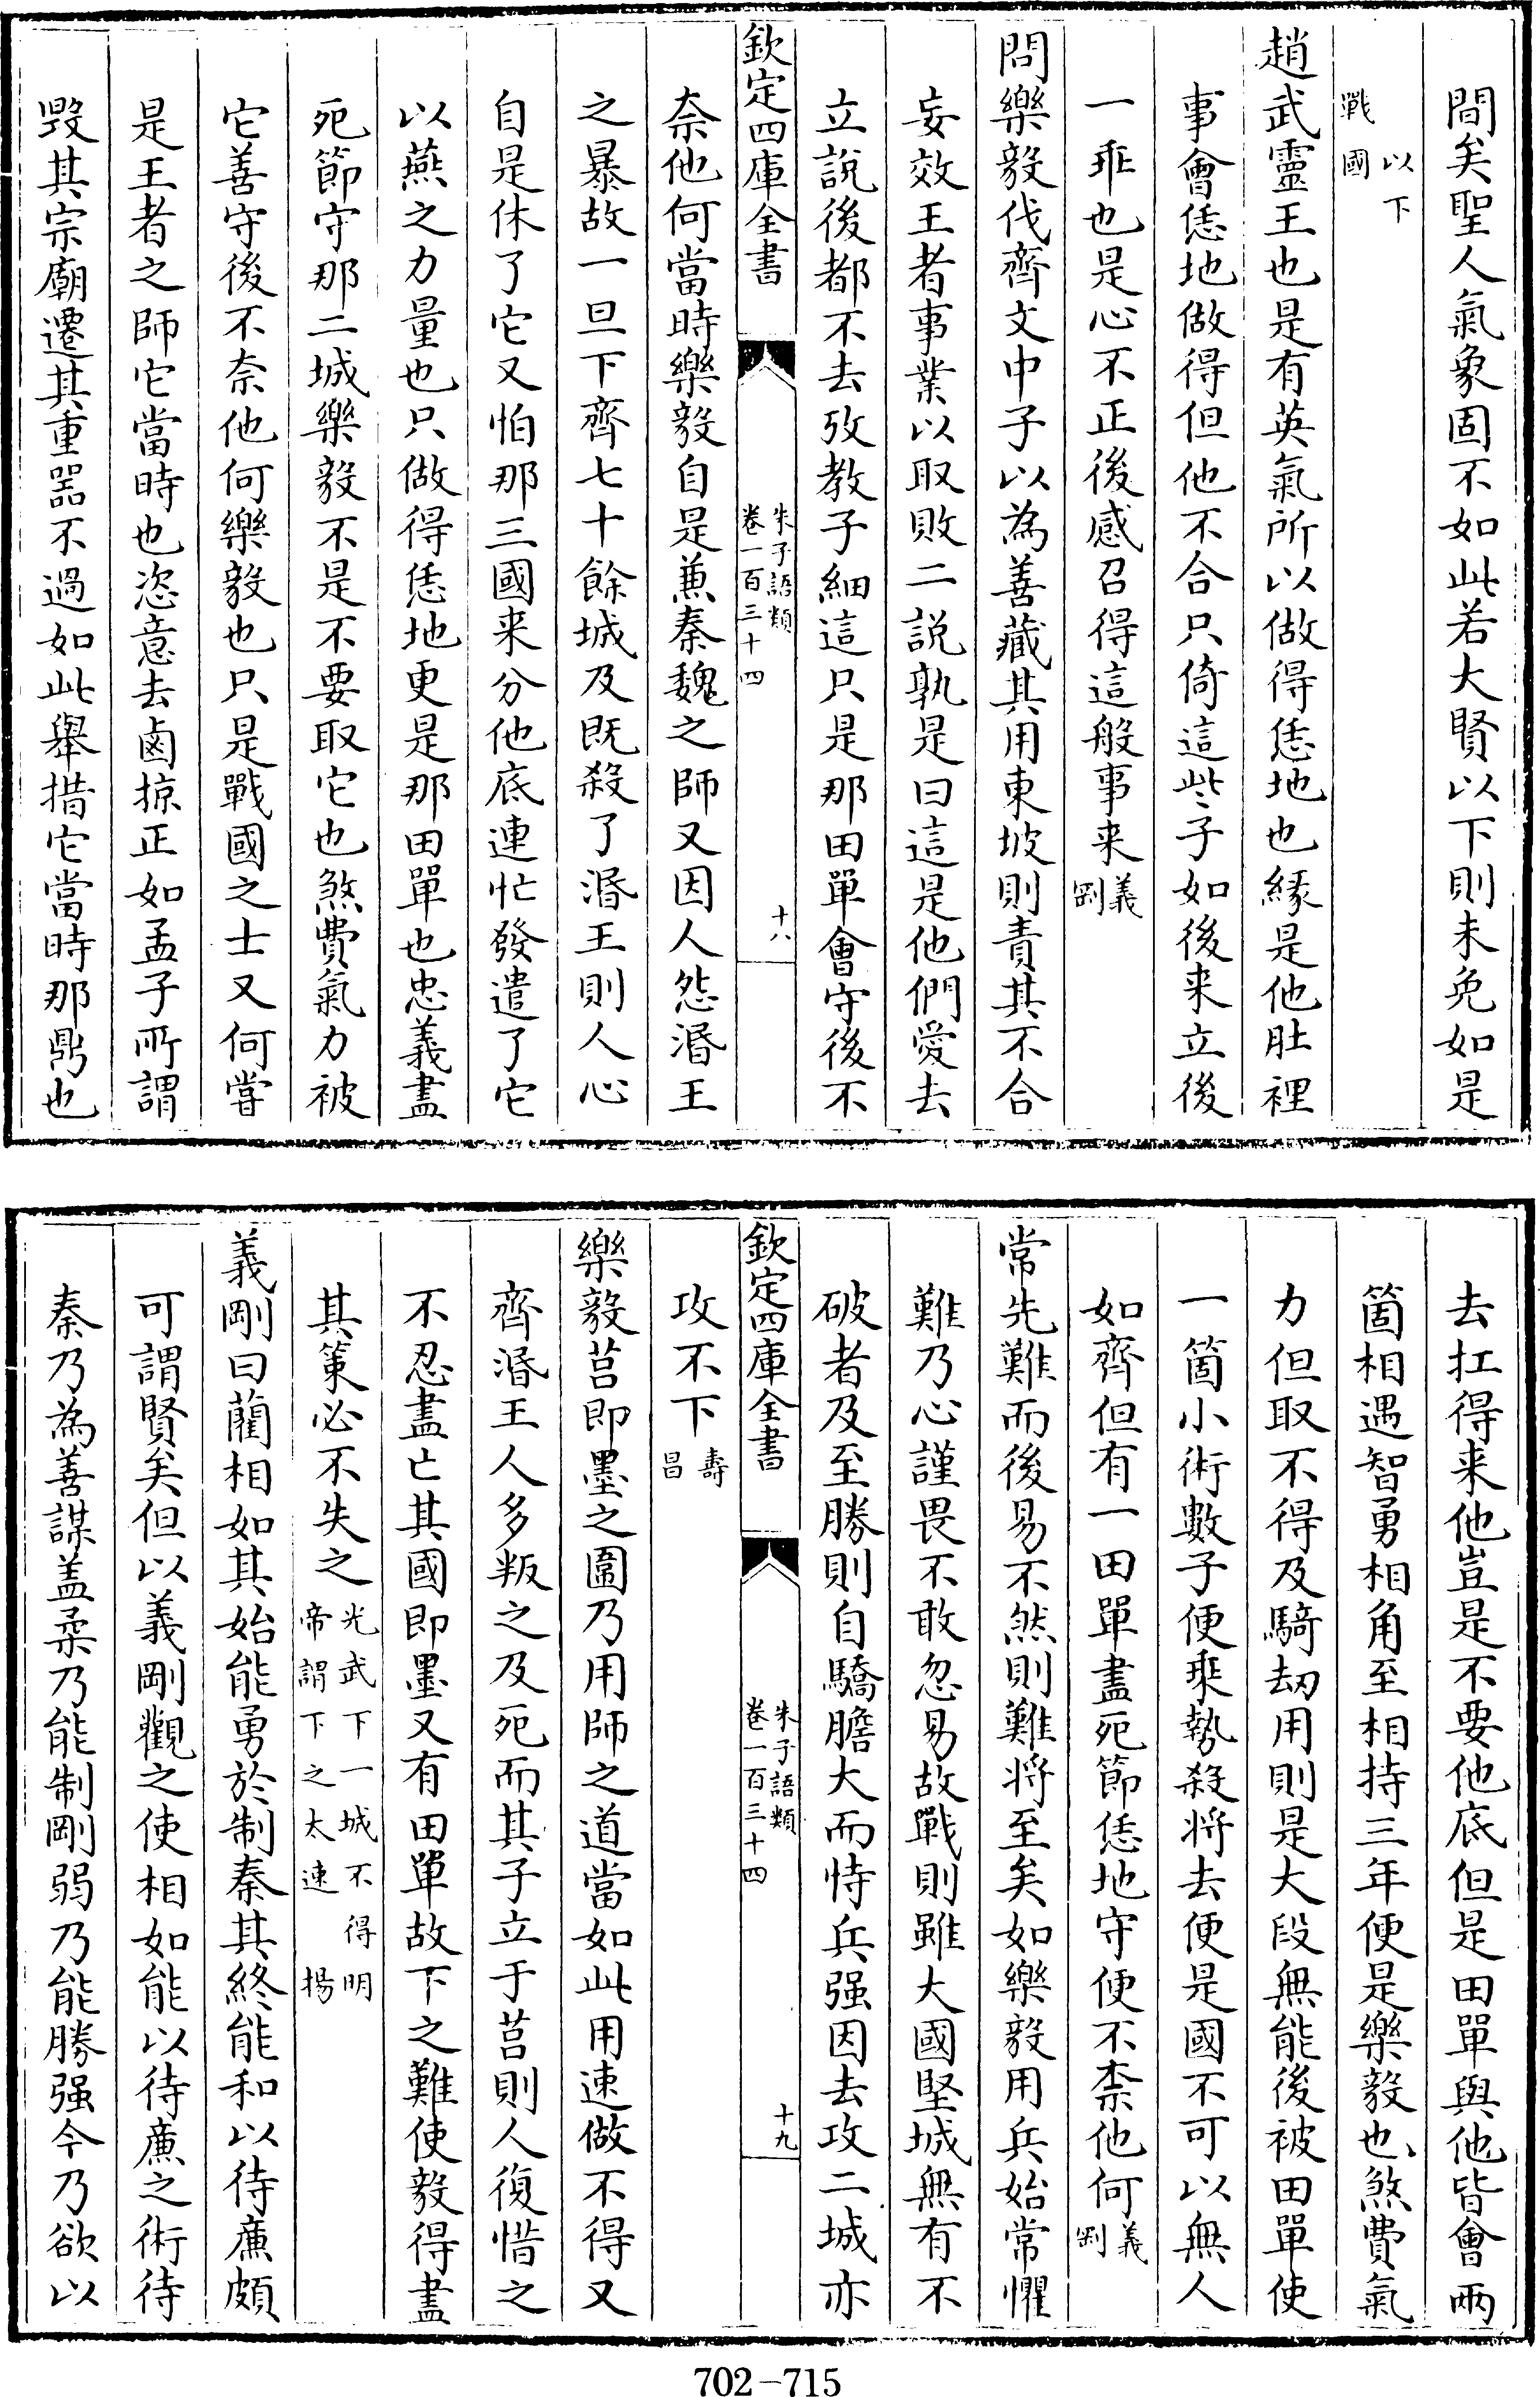 間矣聖人氣象固不如此若大賢以下則未免如是
以下
戰國
趙武靈王也是有英氣所以做得恁地也緣是他肚裡
事會恁地做得但他不合只倚這些子如後来立後
一乖也是心不正後感召得這般事来義剛
問樂毅伐齊文中子以為善藏其用東坡則責其不合
妄效王者事業以取敗二説孰是曰這是他們愛去
立説後都不去攷教子細這只是那田單會守後不
欽定四庫全書
朱子語類
卷一百三十四
十八
奈他何當時樂毅自是兼秦魏之師又因人怨湣王
之暴故一旦下齊七十餘城及既殺了湣王則人心
自是休了它又怕那三國来分他底連忙發遣了它
以燕之力量也只做得恁地更是那田單也忠義盡
死節守那二城樂毅不是不要取它也煞費氣力被
它善守後不奈他何樂毅也只是戰國之士又何嘗
是王者之師它當時也恣意去鹵掠正如孟子所謂
毀其宗廟遷其重器不過如此舉措它當時那鼎也
去扛得来他豈是不要他底但是田單與他皆會兩
箇相遇智勇相角至相持三年便是樂毅也煞費氣
力但取不得及騎劫用則是大段無能後被田單使
一箇小術數子便乘勢殺將去便是國不可以無人
如齊但有一田單盡死節恁地守便不柰他何義剛
常先難而後易不然則難將至矣如樂毅用兵始常懼
難乃心謹畏不敢忽易故戰則雖大國堅城無有不
破者及至勝則自驕膽大而恃兵强因去攻二城亦
欽定四庫全書
朱子語類
卷一百三十四
十九
攻不下壽昌
樂毅莒即墨之圍乃用師之道當如此用速做不得又
齊湣王人多叛之及死而其子立于莒則人復惜之
不忍盡亡其國即墨又有田單故下之難使毅得盡
其策必不失之光武下一城不得明
帝謂下之太速　揚
義剛曰藺相如其始能勇於制秦其終能和以待廉頗
可謂賢矣但以義剛觀之使相如能以待廉之術待
秦乃為善謀盖柔乃能制剛弱乃能勝强今乃欲以
702-715